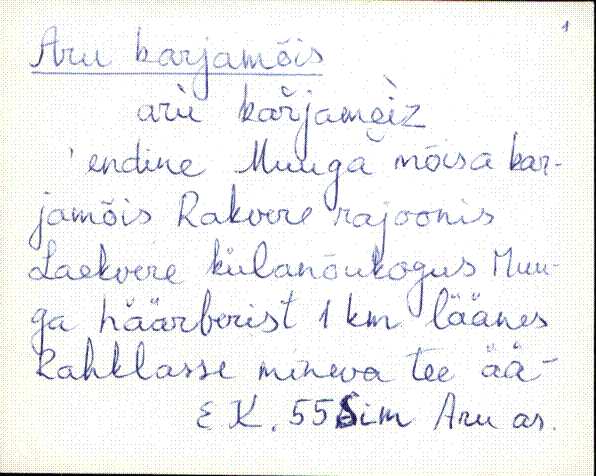 1
Aru karjamõis
arù kařjamẹìz
' endine Muuga mõisa kar-
jamõis Rakvere rajoonis
Laekvere külanõukogus Muu-
ga häärberist 1 km läänes
Rahklasse mineva tee ää-
EK. 55 Sim Aru as.